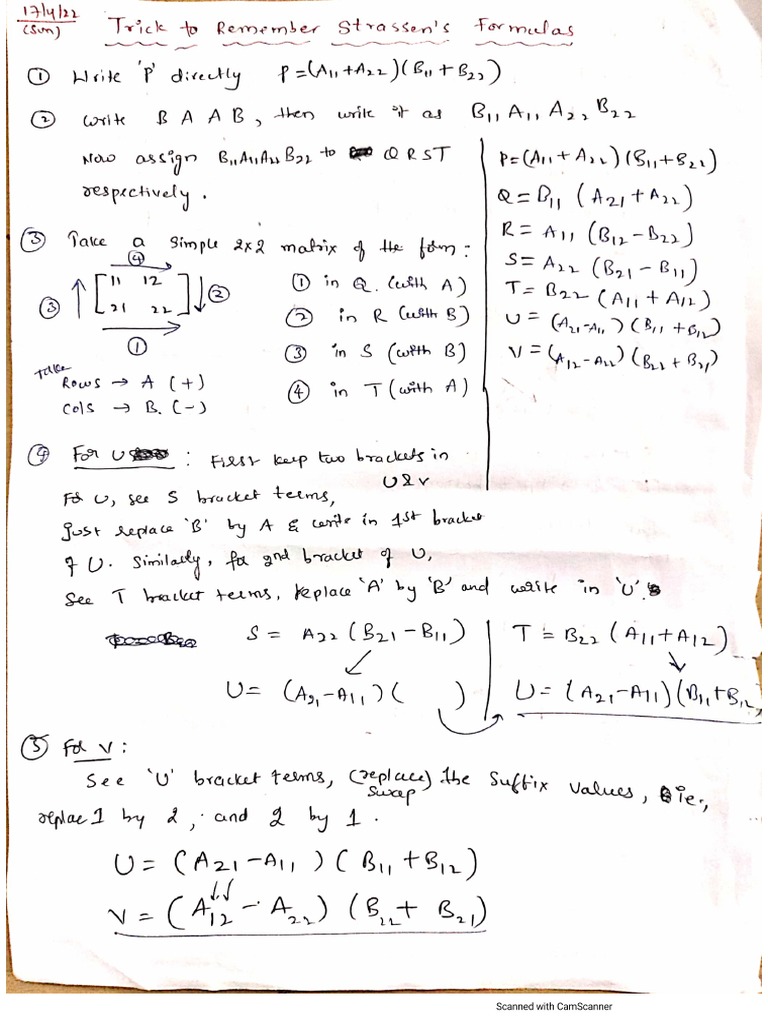 17/4/22
(Sun)
Trick to Remember Strassen's Formulas
① Write 'P' directly P=(A11+A22)(B11+B22)
② Write B A A B, then write it as B11 A11 A22 B22
Now assign B11A11A22B22 to QRST
respectively.
P=(A11+A22)(B11+B22)
Q=B11 (A21+A22)
R=A11 (B12-B22)
S=A22 (B21-B11)
T=B22 (A11+A12)
U=(A21-A11)(B11+B12)
V=(A12-A22)(B22+B21)
③ Take a simple 2x2 matrix of the form:
④
③ [11 12 ②
21 22]
①
Take
Rows → A (+)
Cols → B. (-)
① in Q. (with A)
② in R (with B)
③ in S (with B)
④ in T (with A)
④ For U : First keep two brackets in
U & V
For U, see S bracket terms,
just replace 'B' by A & write in 1st bracket
of U. Similarly, for 2nd bracket of U,
see T bracket terms, replace 'A' by 'B' and write in 'U'.
S = A22 (B21-B11)
U = (A21-A11)( )
T = B22 (A11+A12)
U = (A21-A11)(B11+B12
⑤ For V:
See 'U' bracket terms, (replace) the suffix values, ie.,
swap
replace 1 by 2, and 2 by 1.
U = (A21-A11)(B11+B12)
V = (A12-A22)(B22+B21)
Scanned with CamScanner